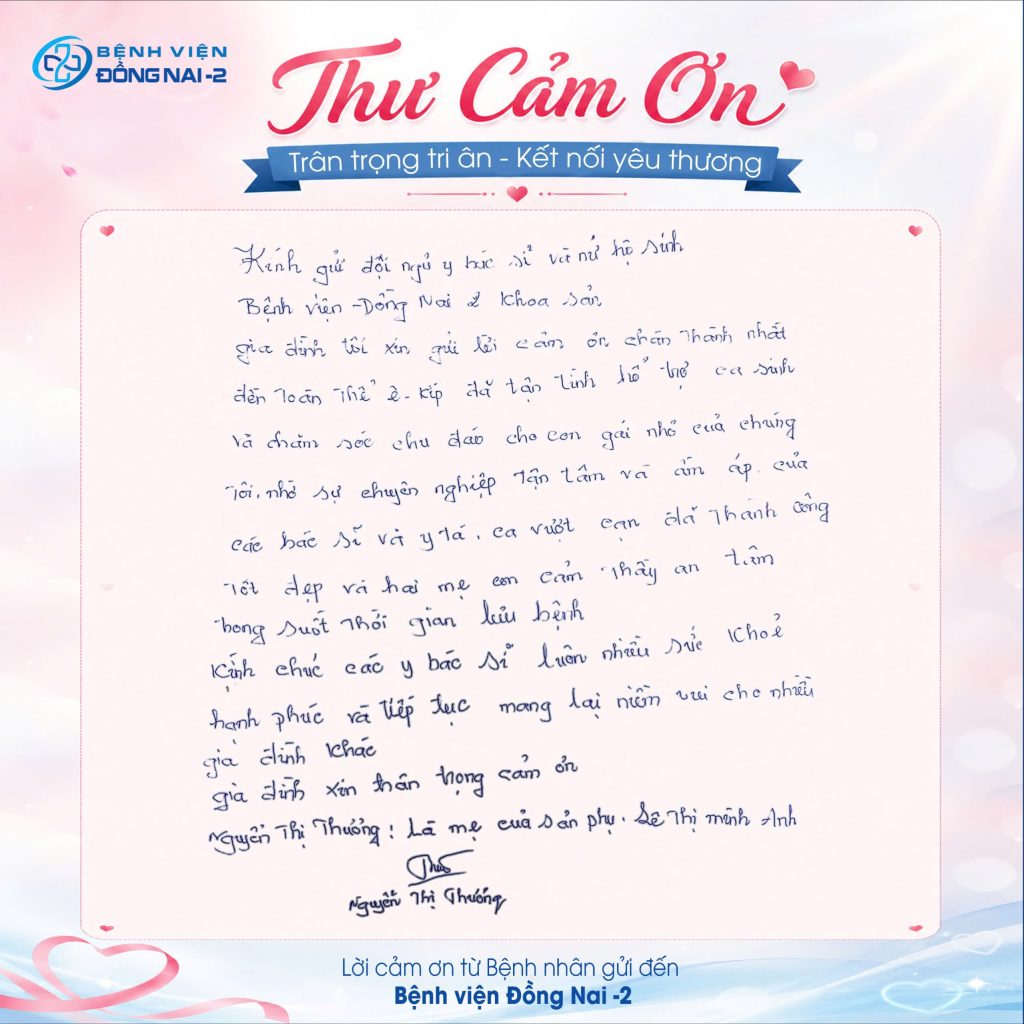 BỆNH VIỆN
ĐỒNG NAI -2
Thư Cảm Ơn
Trân trọng tri ân - Kết nối yêu thương
Kính gửi đội ngủ y bác sĩ và nữ hộ sinh
Bệnh viện - Đồng Nai 2 khoa sản
gia đình tôi xin gửi lời cảm ơn chân thành nhất
đến toàn thể ê-kíp đã tận tình hổ trợ ca sinh
và chăm sóc chu đáo cho con gái nhỏ của chúng
tôi. nhờ sự chuyên nghiệp tận tâm và ấm áp của
các bác sĩ và y tá. ca vượt cạn đã thành công
tốt đẹp và hai mẹ con cảm thấy an tâm
trong suốt thời gian lưu bệnh
kính chúc các y bác sĩ luôn nhiều sức khoẻ
hạnh phúc và tiếp tục mang lại niềm vui cho nhiều
gia đình khác
gia đình xin thân trọng cảm ơn
Nguyễn Thị Thưởng: Là mẹ của sản phụ. Lê Thị minh Anh
Nguyễn Thị Thưởng
Lời cảm ơn từ Bệnh nhân gửi đến
Bệnh viện Đồng Nai -2